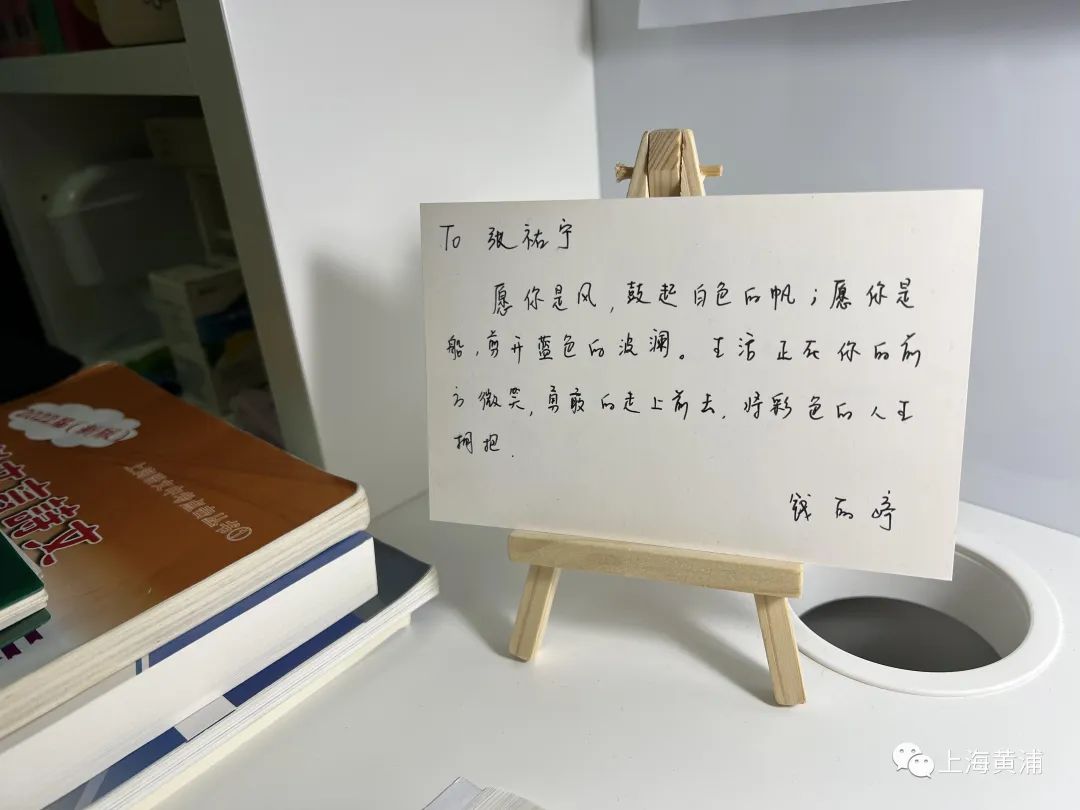 To 张祐宁
愿你是风,鼓起白色的帆;愿你是
船,剪开蓝色的波澜。生活正在你的前
方微笑,勇敢的走上前去,将彩色的人生
拥抱.
钱丽婷
言诗文
上海黄浦